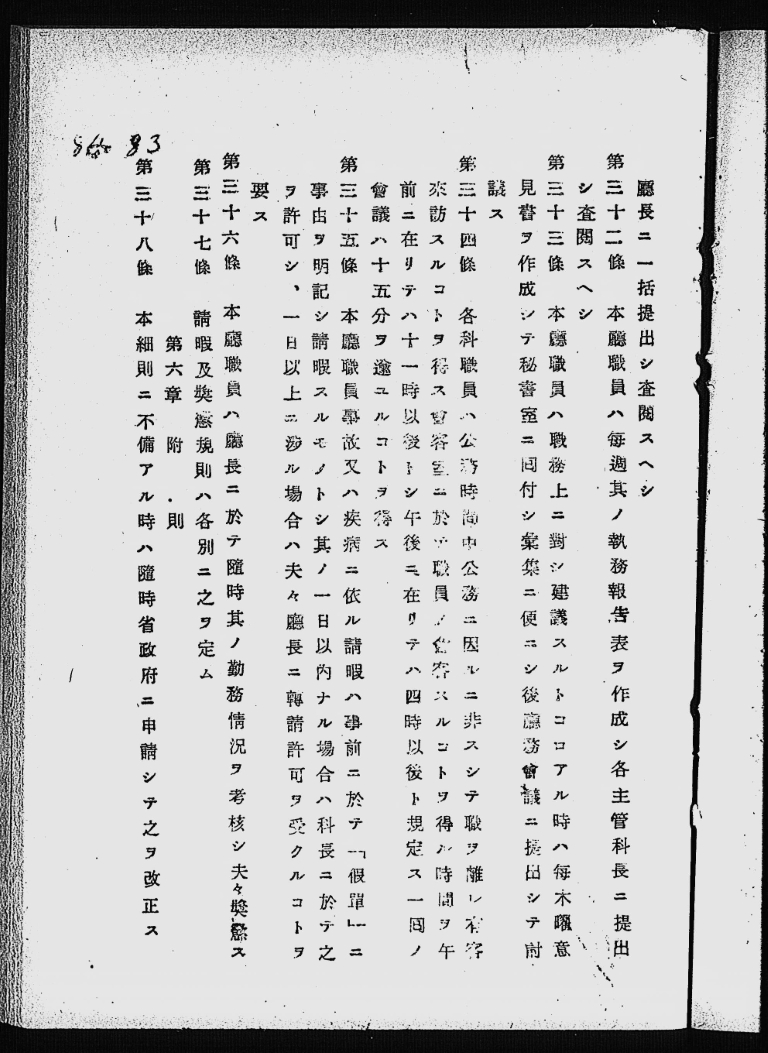 廳長ニ一括提出シ査閲スヘシ
第三十二條　本廳職員ハ每週其ノ執務報告表ヲ作成シ各主管科長ニ提出
シ査閲スヘシ
第三十三條　本廳職員ハ職務上ニ對シ建議スルトコロアル時ハ每木曜意
見書ヲ作成シテ秘書室ニ回付シ彙集ニ便ニシ後廳務會議ニ提出シテ討
議ス
第三十四條　各科職員ハ公務時間中公務ニ因ルニ非スシテ職ヲ離レ有客
來訪スルコトヲ得ス會客室ニ於テ職員ノ會客スルコトヲ得ル時間ヲ午
前ニ在リテハ十一時以後トシ午後ニ在リテハ四時以後ト規定ス一回ノ
會議ハ十五分ヲ逾ユルコトヲ得ス
第三十五條　本廳職員事故又ハ疾病ニ依ル請暇ハ事前ニ於テ「假單」ニ
事由ヲ明記シ請暇スルモノトシ其ノ一日以內ナル場合ハ科長ニ於テ之
ヲ許可シ、一日以上ニ涉ル場合ハ夫々廳長ニ轉請許可ヲ受クルコトヲ
要ス
第三十六條　本廳職員ハ廳長ニ於テ隨時其ノ勤務情況ヲ考核シ夫々獎懲ス
第三十七條　請暇及獎懲規則ハ各別ニ之ヲ定ム
第六章　附．則
第三十八條　本細則ニ不備アル時ハ隨時省政府ニ申請シテ之ヲ改正ス
83